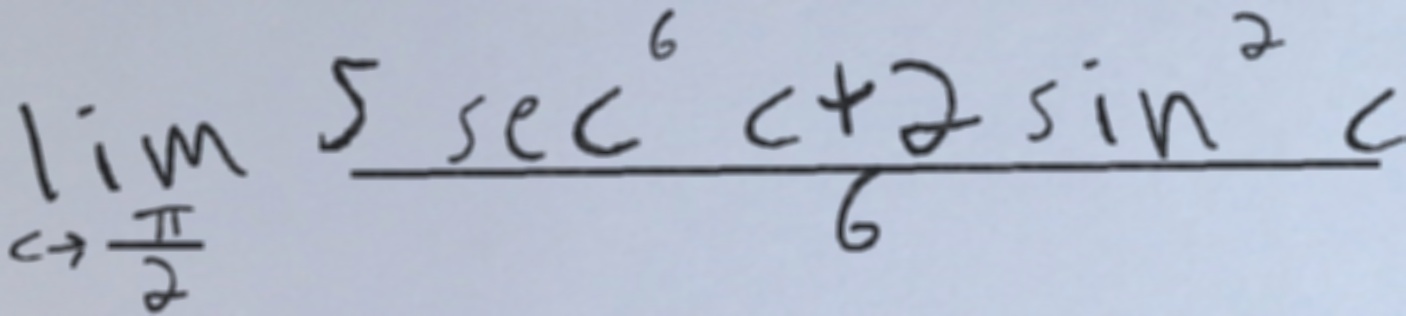 lim c→π/2 (5 sec^6 c+2 sin^2 c)/6